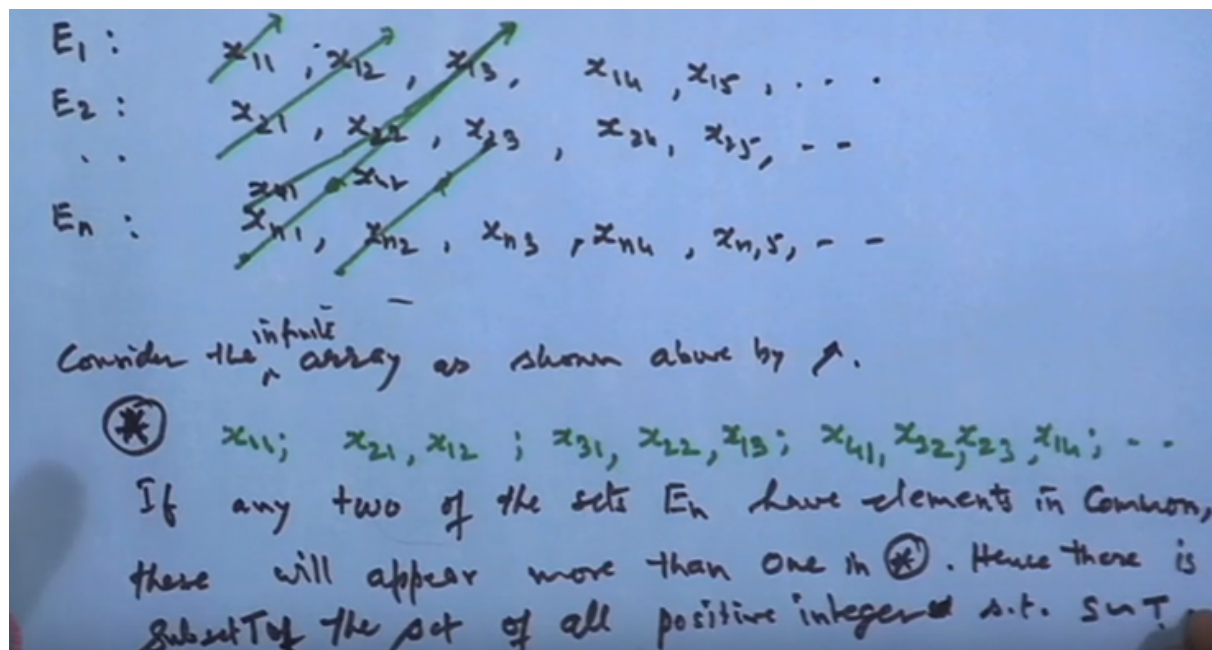 E₁ : x₁₁ , x₁₂ , x₁₃ , x₁₄ , x₁₅ , . . .
E₂ : x₂₁ , x₂₂ , x₂₃ , x₂₄ , x₂₅ , - -
. .
Eₙ : xₙ₁ , xₙ₂ , xₙ₃ , xₙ₄ , xₙ,₅ , - -
Consider the infinite array as shown above by ↗.
⊛ x₁₁; x₂₁, x₁₂ ; x₃₁, x₂₂, x₁₃; x₄₁, x₃₂, x₂₃, x₁₄; - -
If any two of the sets Eₙ have elements in Common,
these will appear more than one in ⊛. Hence there is
subset T of the set of all positive integer s.t. S ~ T